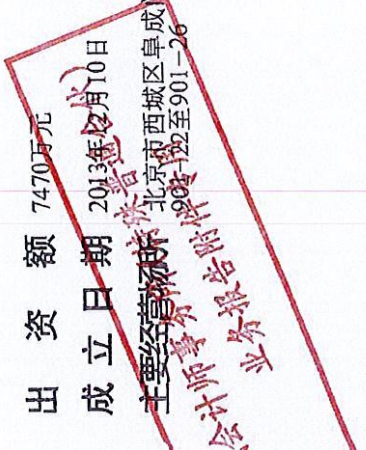 出资额 7470万元
成立日期 2013年12月10日
主要经营场所 北京市西城区阜成
901-22至901-26
会计师事务
业务报告附件